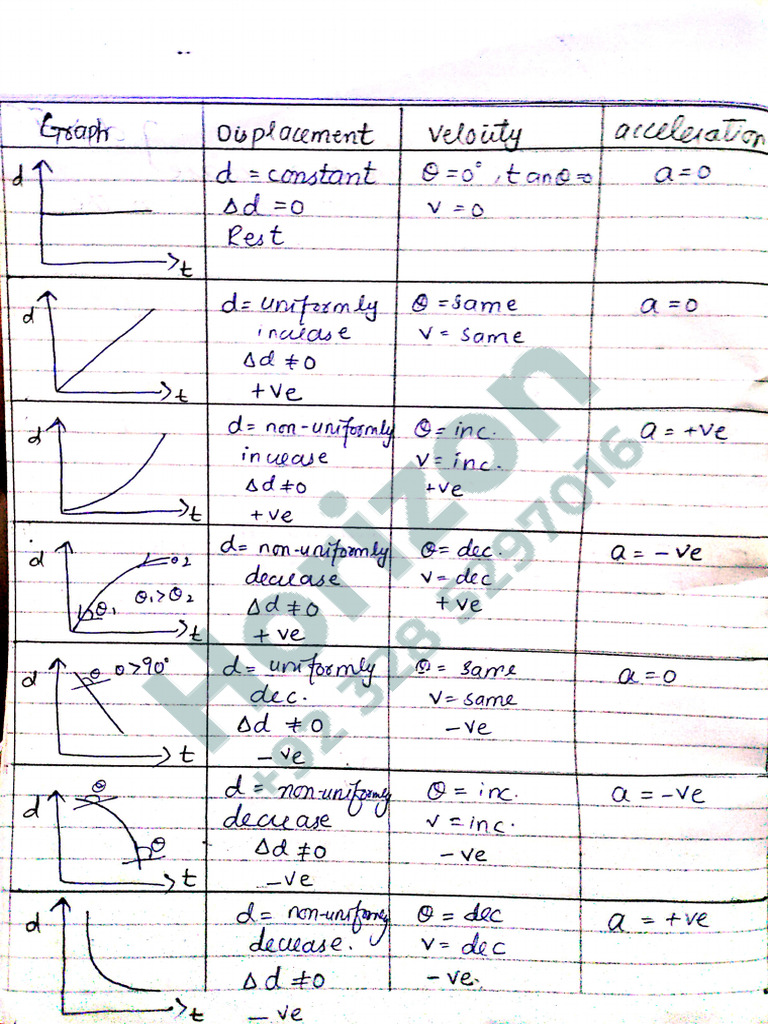 Graph Displacement Velocity acceleration
d
t
d = constant
Δd = 0
Rest
θ = 0° , tanθ=0
v = 0
a = 0
d
t
d = uniformly
increase
Δd ≠ 0
+ve
θ = same
v = same
a = 0
d
t
d = non-uniformly
increase
Δd ≠ 0
+ve
θ = inc.
v = inc.
+ve
a = +ve
d
θ2
θ1
θ1 > θ2
t
d = non-uniformly
decrease
Δd ≠ 0
+ve
θ = dec.
v = dec
+ve
a = -ve
d
θ θ>90°
t
d = uniformly
dec.
Δd ≠ 0
-ve
θ = same
v = same
-ve
a = 0
d
θ
θ
t
d = non-uniformly
decrease
Δd ≠ 0
-ve
θ = inc.
v = inc.
-ve
a = -ve
d
t
d = non-uniformly
decrease.
Δd ≠ 0
-ve
θ = dec
v = dec
-ve.
a = +ve
Horizon
+92 328 5297016